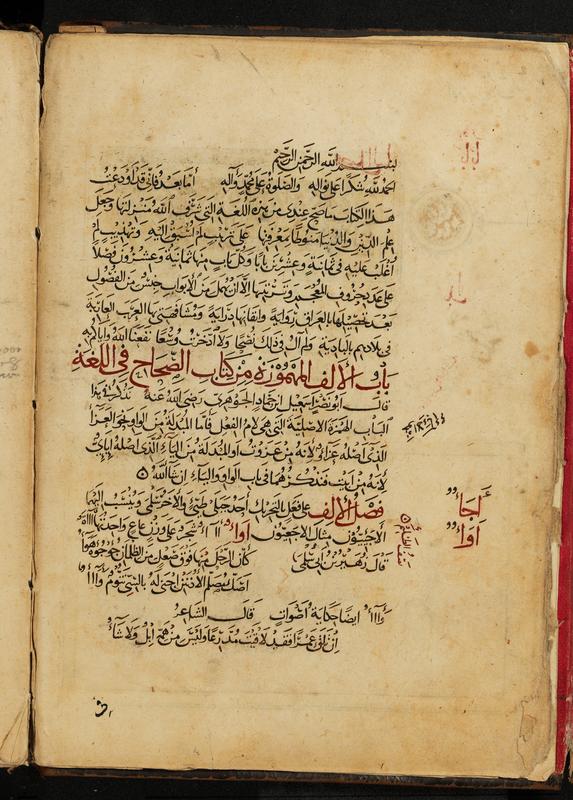 بسم الله الرحمن الرحيم
الحمد لله شكرا على نواله والصلوة على محمد وآله أما بعد فاني قد أودعت
هذا الكتاب ما صح عندي من هذه اللغة التي شرف الله منزلتها وجعل
علم الدين والدنيا منوطا بمعرفتها على ترتيب لم أسبق إليه وتهذيب لم
أغلب عليه في ثمانية وعشرين بابا وكل باب منها ثمانية وعشرون فصلا
على عدد حروف المعجم وترتيبها إلا أن يهمل من الأبواب جنس من الفصول
بعد تحصيلها بالعراق رواية وإتقانها دراية ومشافهتي بها العرب العاربة
في ديارهم بالبادية ولم آل في ذلك نصحا ولا ادخرت وسعا نفعنا الله وإياكم به
باب الألف المهموزة من كتاب الصحاح في اللغة
قال أبو نصر إسمعيل بن حماد الجوهري رضي الله عنه نذكر في هذا
الباب الهمزة الأصلية التي هي لام الفعل فأما المبدلة من الواو نحو العزاء
الذي أصله عزاو لأنه من عزوت أو المبدلة من الياء الذي أصله اباي
لأنه من ابيت فنذكرهما في باب الواو والياء إن شا الله
فصل الألف على فعل بالتحريك أحد جبلي طيئ والآخر سلمى وينسب إليهما
الأجئيون مثال الأجعيون آوأ شجر على وزن عاع واحدتها
قال زهير بن أبي سلمى كأن الرحل منها فوق صعل من الظلمان جؤجؤه هواء
أصك مصلم الأذنين أجنى له بالسي تنوم وآء
وآء أيضا حكاية أصوات قال الشاعر
إن تلق عمرا فقد لاقيت مدرعا وليس من همه إبل ولا شاء
أجأ
أوأ